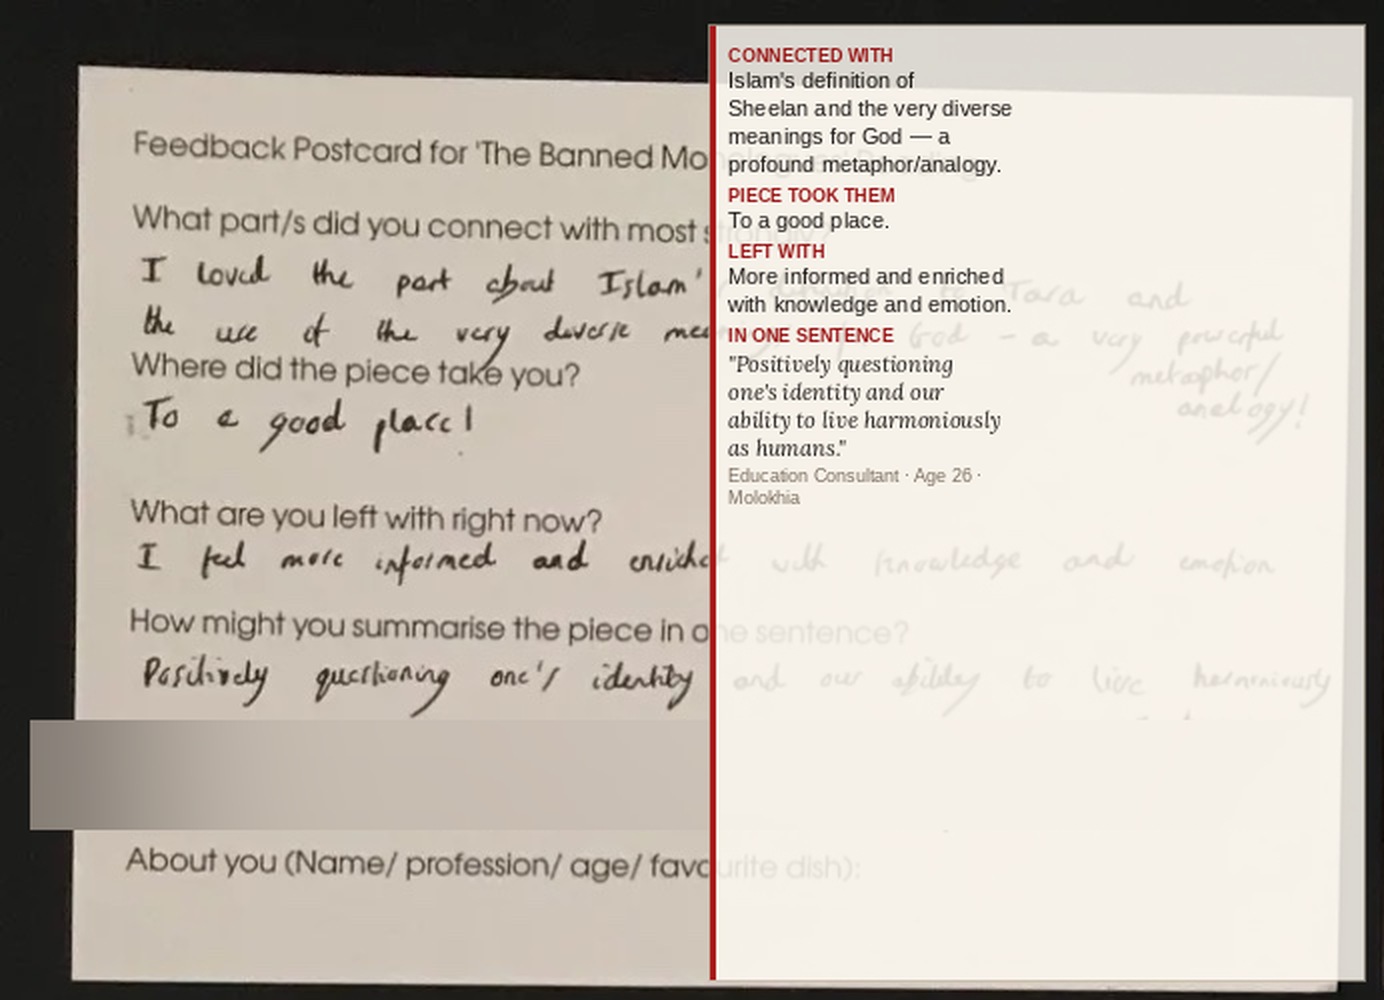 Feedback Postcard for 'The Banned Mo
What part/s did you connect with most strongly?
I loved the part about Islam's definition to Tara and
the use of the very diverse meanings for God – a very powerful
metaphor/
analogy!
Where did the piece take you?
To a good place!
What are you left with right now?
I feel more informed and enriched with knowledge and emotion
How might you summarise the piece in one sentence?
Positively questioning one's identity and our ability to live harmoniously
About you (Name/ profession/ age/ favourite dish):
CONNECTED WITH
Islam's definition of
Sheelan and the very diverse
meanings for God — a
profound metaphor/analogy.
PIECE TOOK THEM
To a good place.
LEFT WITH
More informed and enriched
with knowledge and emotion.
IN ONE SENTENCE
"Positively questioning
one's identity and our
ability to live harmoniously
as humans."
Education Consultant · Age 26 ·
Molokhia